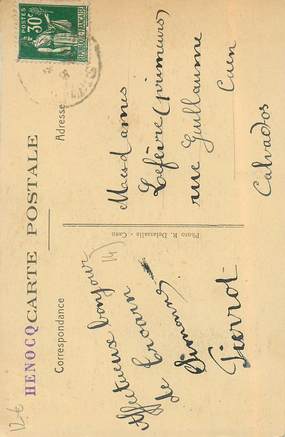 HENOCQ CARTE POSTALE
Correspondance
Adresse
Affectueux bonjour
de
Pierrot
Photo R. Delassalle - Caen
Mesdames
Lefèvre (primeurs)
rue Guillaume
Caen
Calvados
30c
14
12€